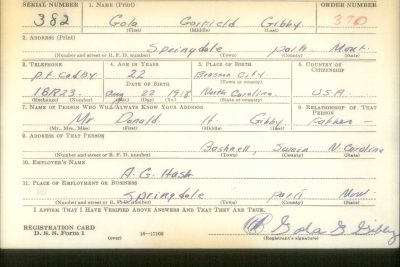 SERIAL NUMBER 1. NAME (Print) ORDER NUMBER
382 Gola Garfield Gibby 370
(First) (Middle) (Last)
2. ADDRESS (Print)
Springdale Park Mont.
(Number and street or R. F. D. number) (Town) (County) (State)
3. TELEPHONE 4. AGE IN YEARS 5. PLACE OF BIRTH 6. COUNTRY OF CITIZENSHIP
22 Bryson City
DATE OF BIRTH (Town or county)
18R23 Aug 22 1918 North Carolina U.S.A.
(Exchange) (Number) (Mo.) (Day) (Yr.) (State or country)
7. NAME OF PERSON WHO WILL ALWAYS KNOW YOUR ADDRESS 8. RELATIONSHIP OF THAT PERSON
Mr Donald H. Gibby Father
(Mr., Mrs., Miss) (First) (Middle) (Last)
9. ADDRESS OF THAT PERSON
Bushnell, Swain N. Carolina
(Number and street or R. F. D. number) (Town) (County) (State)
10. EMPLOYER'S NAME
A. G. Hash
11. PLACE OF EMPLOYMENT OR BUSINESS
Springdale Park Mont.
(Number and street or R. F. D. number) (Town) (County) (State)
I AFFIRM THAT I HAVE VERIFIED ABOVE ANSWERS AND THAT THEY ARE TRUE.
REGISTRATION CARD
D. S. S. Form 1 (over) 16—17105 Gola G Gibby
(Registrant's signature)